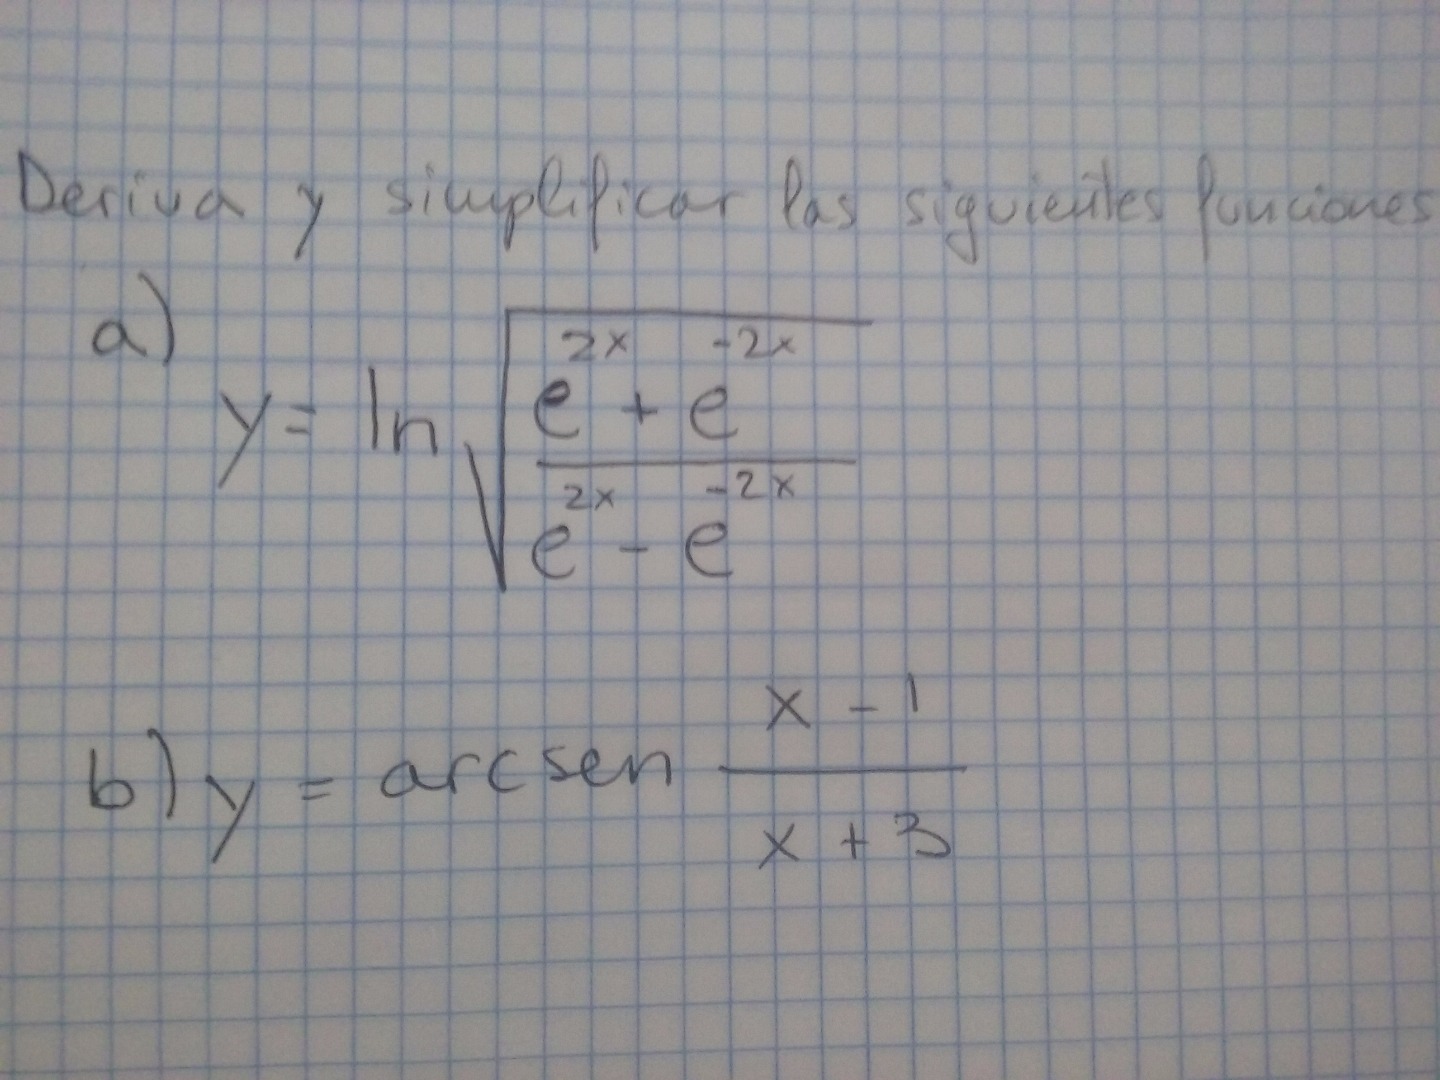 Deriva y simplificar las siguientes funciones
a) y = ln √((e^{2x} + e^{-2x})/(e^{2x} - e^{-2x}))
b) y = arcsen (x - 1)/(x + 3)